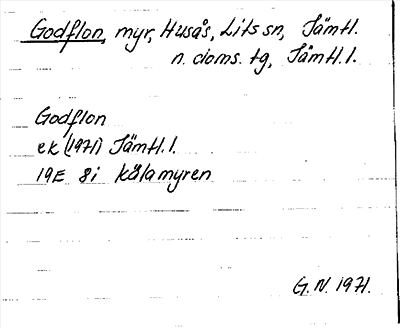 Godflon, myr, Husås, Lits sn, Jämtl.
n. doms. tg, Jämtl. l.
Godflon
ek (1971) Jämtl. l.
19E 8i Kålamyren
G.N. 1971.